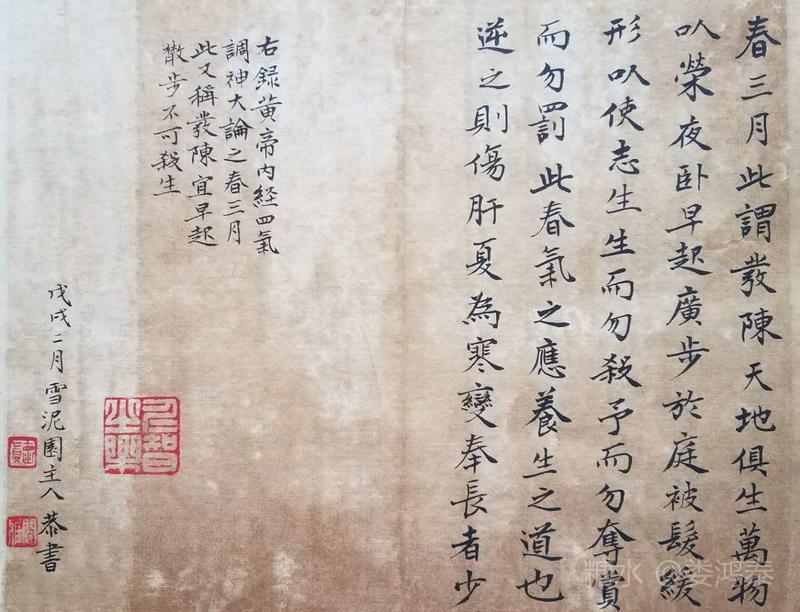 春三月此謂發陳天地俱生萬物
以榮夜卧早起廣步於庭被髮緩
形以使志生生而勿殺予而勿奪賞
而勿罰此春氣之應養生之道也
逆之則傷肝夏為寒變奉長者少
右録黄帝内経四氣
調神大論之春三月
此又稱發陳宜早起
散步不可殺生
戊戌二月雪泥園主人恭書
糖水 @娄鸿泰